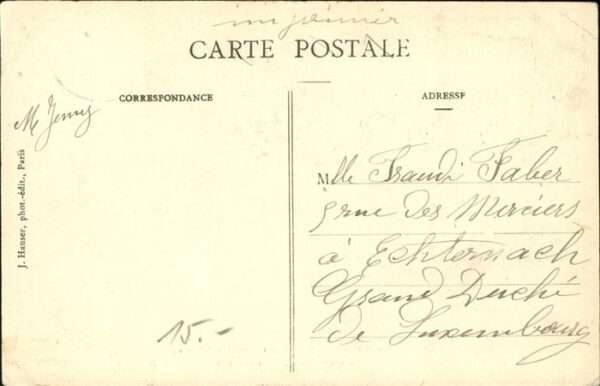 CARTE POSTALE
CORRESPONDANCE
ADRESSE
M Jenny
J. Hauser, phot.-édit., Paris
Mlle Frandi Faber
5 rue des Merciers
à Echternach
Grand Duché
de Luxembourg
15.-